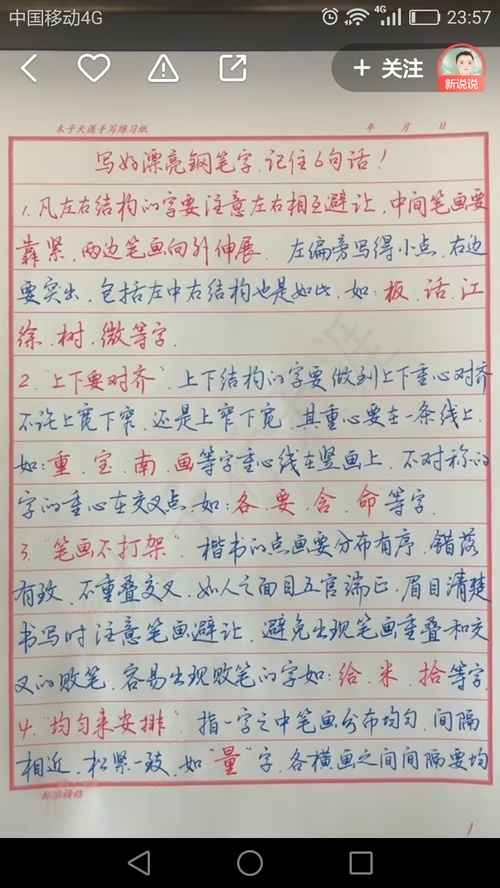 中国移动4G
4G
23:57
+ 关注
新说说
木子天涯手写练习纸
年 月 日
写好漂亮钢笔字.记住6句话!
1.凡左右结构的字要注意左右相互避让.中间笔画要
靠紧.两边笔画向外伸展. 左偏旁写得小点.右边
要突出.包括左中右结构也是如此.如:板.话.江
徐.树.微等字.
2."上下要对齐".上下结构的字要做到上下重心对齐
不论上宽下窄.还是上窄下宽.其重心要在一条线上.
如:重.宝.南.画等字重心线在竖画上.不对称的
字的重心在交叉点.如:各.要.含.命等字.
3."笔画不打架".楷书的点画要分布有序.错落
有致.不重叠交叉.如人之面目五官端正.眉目清楚
书写时注意笔画避让.避免出现笔画重叠和交
叉的败笔.容易出现败笔的字如:给.米.拾等字.
4."均匀来安排".指一字之中笔画分布均匀.间隔
相近.松紧一致.如"量"字.各横画之间间隔要均
1